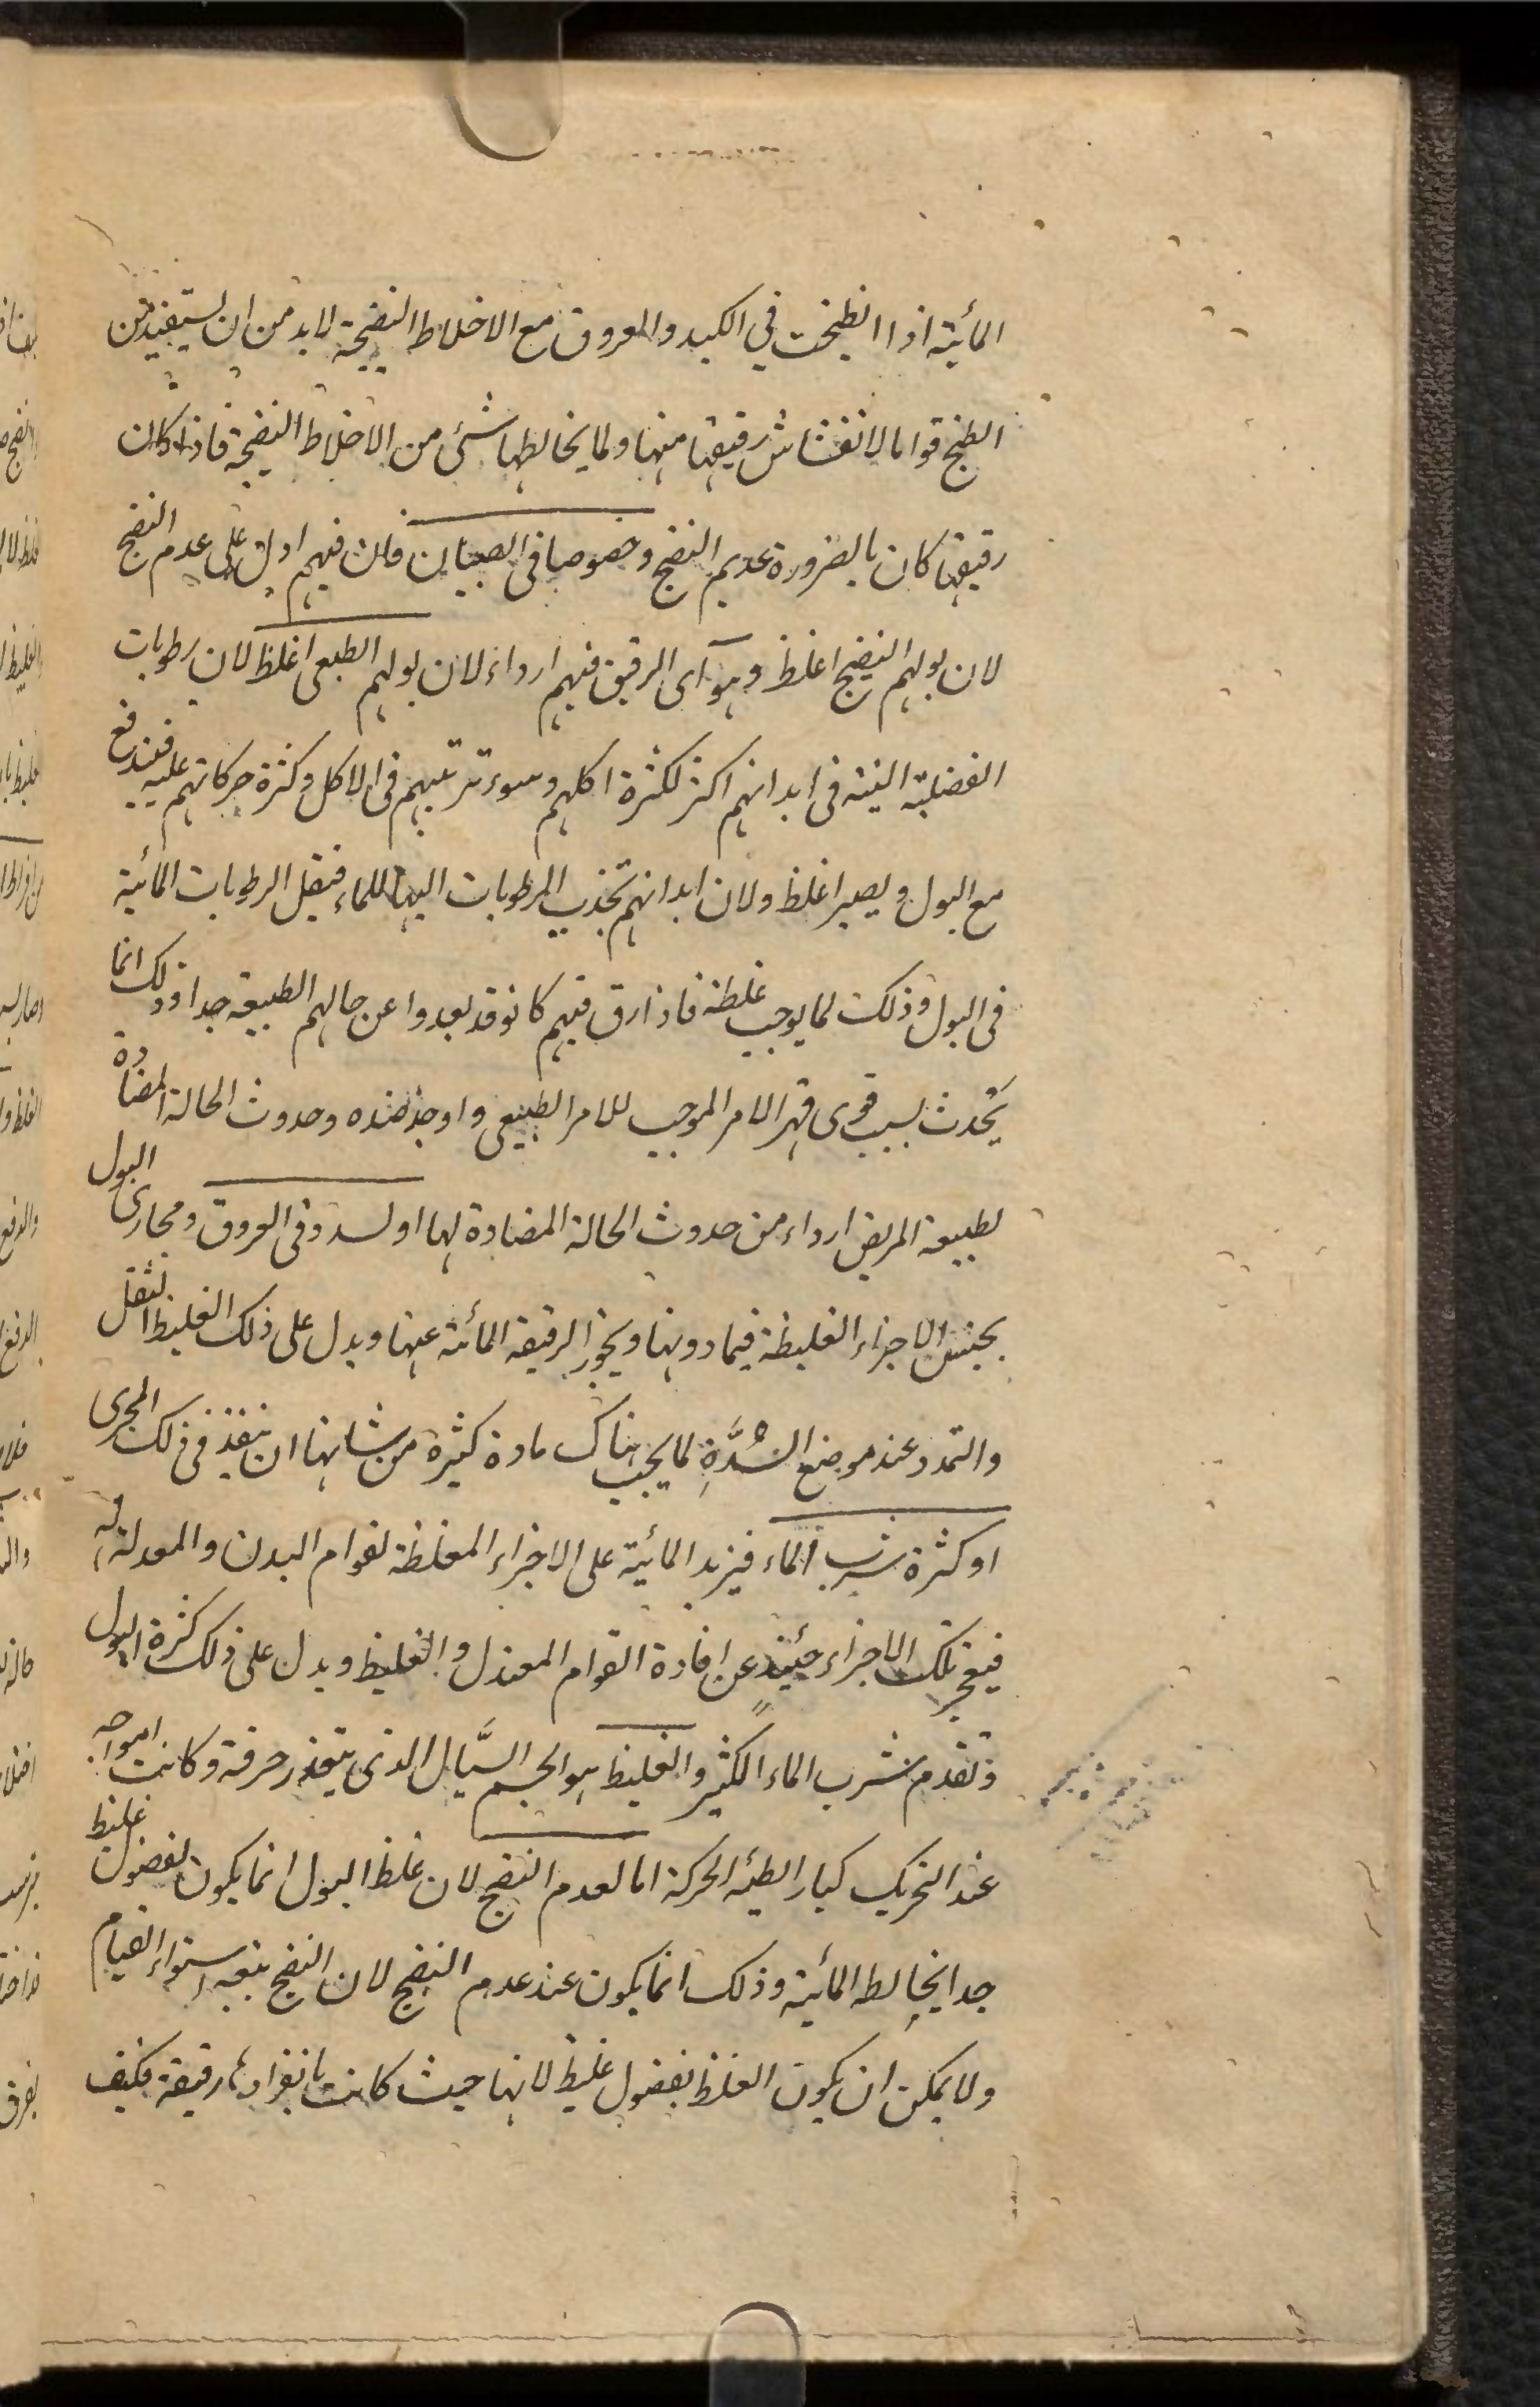 المائية اذا انطبخت في الكبد والعروق مع الاخلاط النضيجة لا بد من ان يستفيد من
الطبخ قواما لانفشاش رقيقها منها ولما يخالطها شئ من الاخلاط النضيجة فاذا كان
رقيقها كان بالضرورة عديم النضج وخصوصا في الصبيان فان فيهم ادل على عدم النضج
لان بولهم النضيج اغلظ وهو اى الرقيق فيهم ارداء لان بولهم الطبعى اغلظ لان رطوبات
الفضلية النية في ابدانهم اكثر لكثرة اكلهم وسوء ترتيبهم في الاكل وكثرة حركاتهم عليه فيندفع
مع البول ويصير اغلظ ولان ابدانهم تجذب الرطوبات اليها للنماء فيقل الرطوبات المائية
في البول وذلك لما يوجب غلظة فاذا رق فيهم كانو قد بعدوا عن حالهم الطبيعة جدا وذلك انما
يحدث بسبب قوى قهر الامر الموجب للامر الطبيعى واوجد ضده وحدوث الحالة المضادة
لطبيعة المريض ارداء من حدوث الحالة المضادة لها او لسدد في العروق ومجارى البول
يحتبس الاجزاء الغليظة فيما دونها ويجوز الرقيقة المائية عنها ويدل على ذلك الغليظ الثقل
والتمدد عند موضع السدة لما يجب هناك مادة كثيرة من شانها ان ينفذ في ذلك المجرى
او كثرة شرب الماء فيزيد المائية على الاجزاء المغلظة لقوام البدن والمعدلة له
فيعجز تلك الاجزاء حينئذ عن افادة القوام المعتدل والغليظ ويدل على ذلك كثرة البول
وتقدم شرب الماء الكثير والغليظ هو الجسم السيال الذى يتعذر حرقة وكانت امواجه
عند التحريك كبار ابطيئه الحركة اما لعدم النضج لان غلظ البول انما يكون لفضول غليظ
جدا يخالطه المائية وذلك انما يكون عند عدم النضج لان النضج يتبعه استواء القيام
ولا يمكن ان يكون الغلظ بفضول غليظ لانها حيث كانت بانفرادها رقيقة فكيف